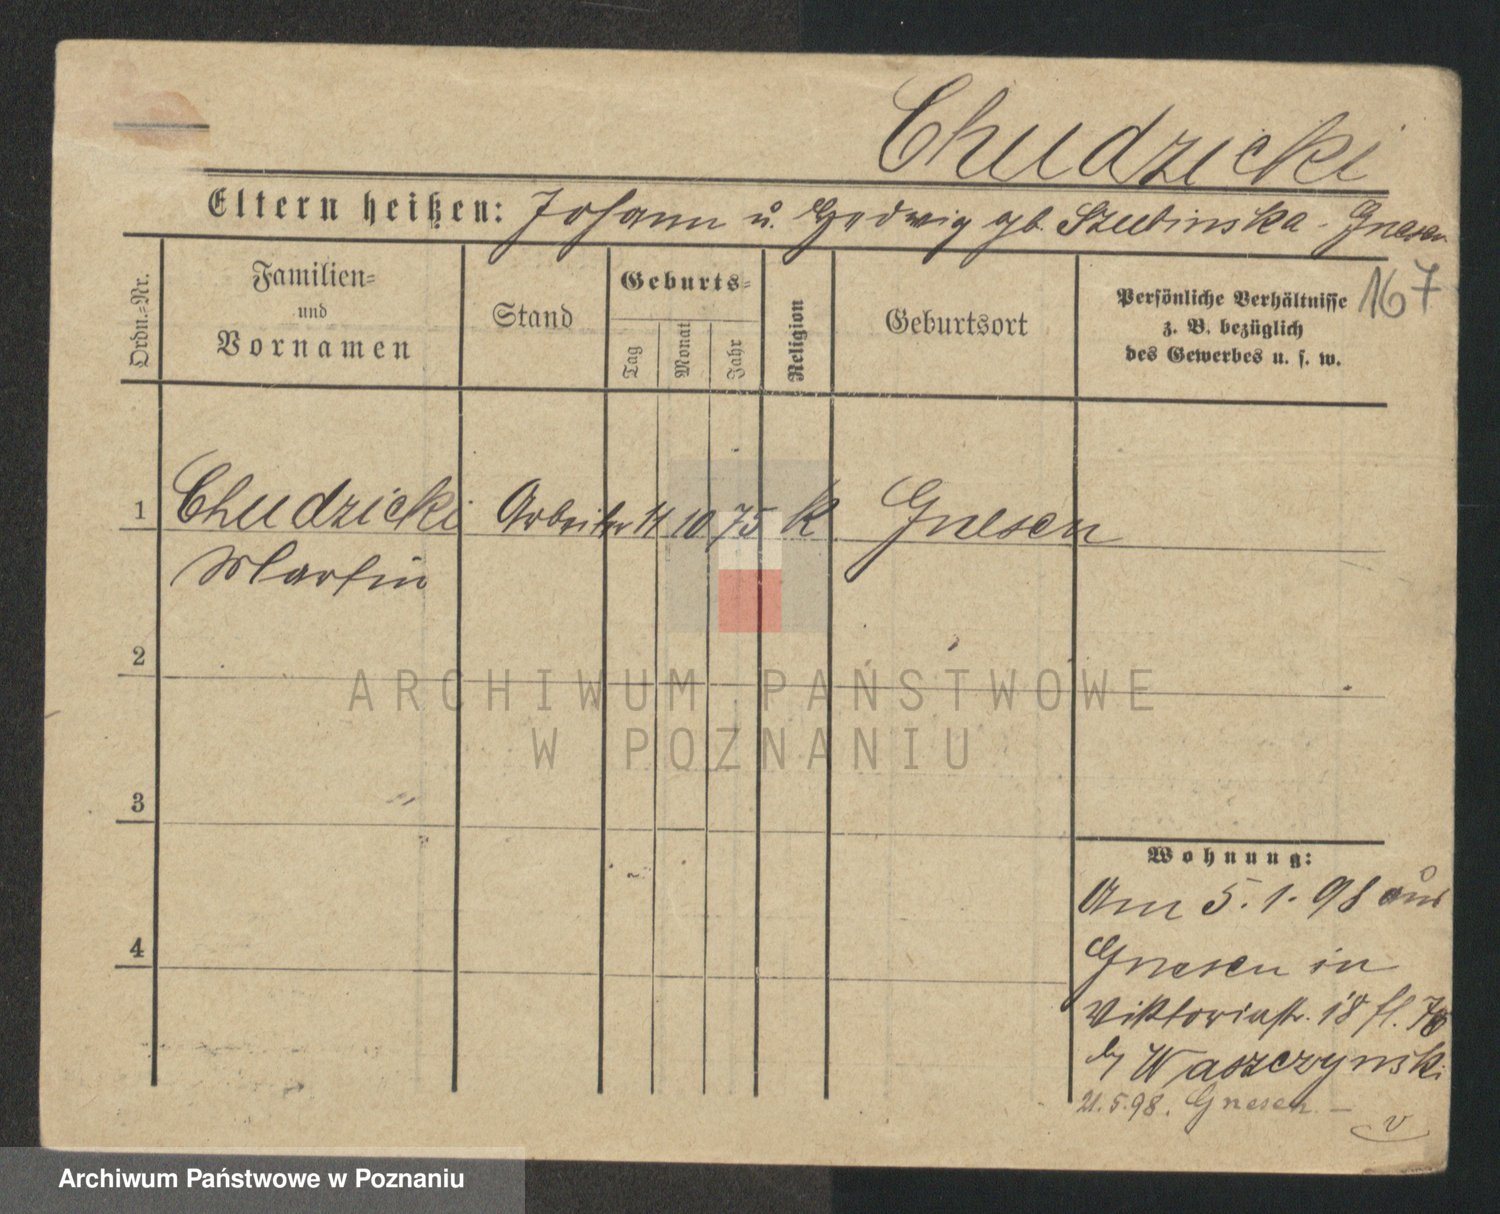 Chudzicki
Eltern heißen: Johann u. Hedwig gb. Szubinska - Gnesen
167
Ordn.=Nr.
Familien=
und
Vornamen
Stand
Geburts=
Tag
Monat
Jahr
Religion
Geburtsort
Persönliche Verhältnisse
z. B. bezüglich
des Gewerbes u. s. w.
1 Chudzicki Arbeiter 11 10 75 K Gnesen
Martin
2
3
4
Wohnung:
Am 5.1.98 aus
Gnesen in
Viktoriastr. 18
by Waszczynski
21.5.98. Gnesen. —
ARCHIWUM PAŃSTWOWE
W POZNANIU
Archiwum Państwowe w Poznaniu